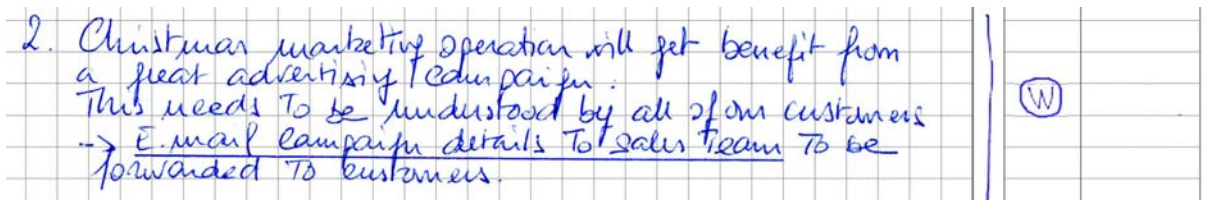 2. Christmas marketing operation will get benefit from
a great advertising campaign.
This needs to be understood by all of our customers
--> E.mail campaign details to sales team to be
forwarded to customers.
W